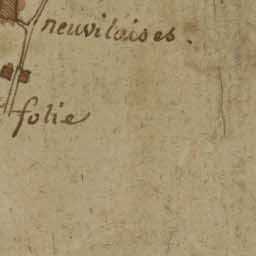 neuvilaises.
folie